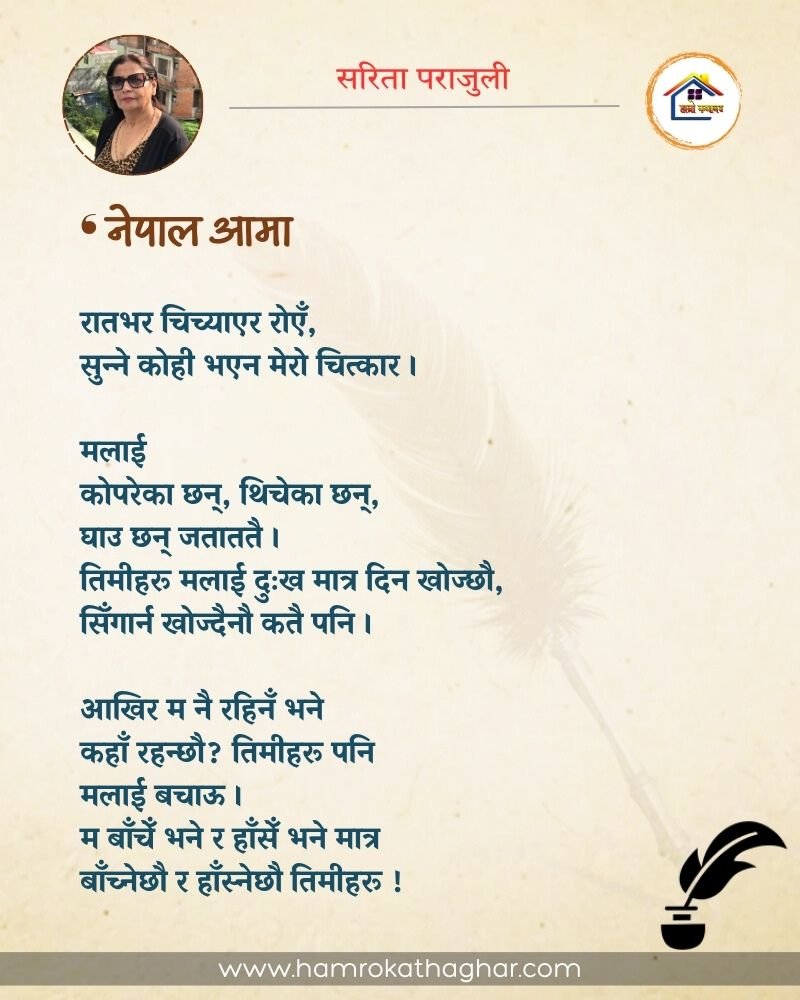 सरिता पराजुली
हाम्रो कथाघर
‘ नेपाल आमा
रातभर चिच्याएर रोएँ,
सुन्ने कोही भएन मेरो चित्कार ।
मलाई
कोपरेका छन्, थिचेका छन्,
घाउ छन् जताततै ।
तिमीहरू मलाई दुःख मात्र दिन खोज्छौ,
सिँगार्न खोज्दैनौ कतै पनि ।
आखिर म नै रहिनँ भने
कहाँ रहन्छौ? तिमीहरू पनि
मलाई बचाऊ ।
म बाँचेँ भने र हाँसेँ भने मात्र
बाँच्नेछौ र हाँस्नेछौ तिमीहरू !
www.hamrokathaghar.com